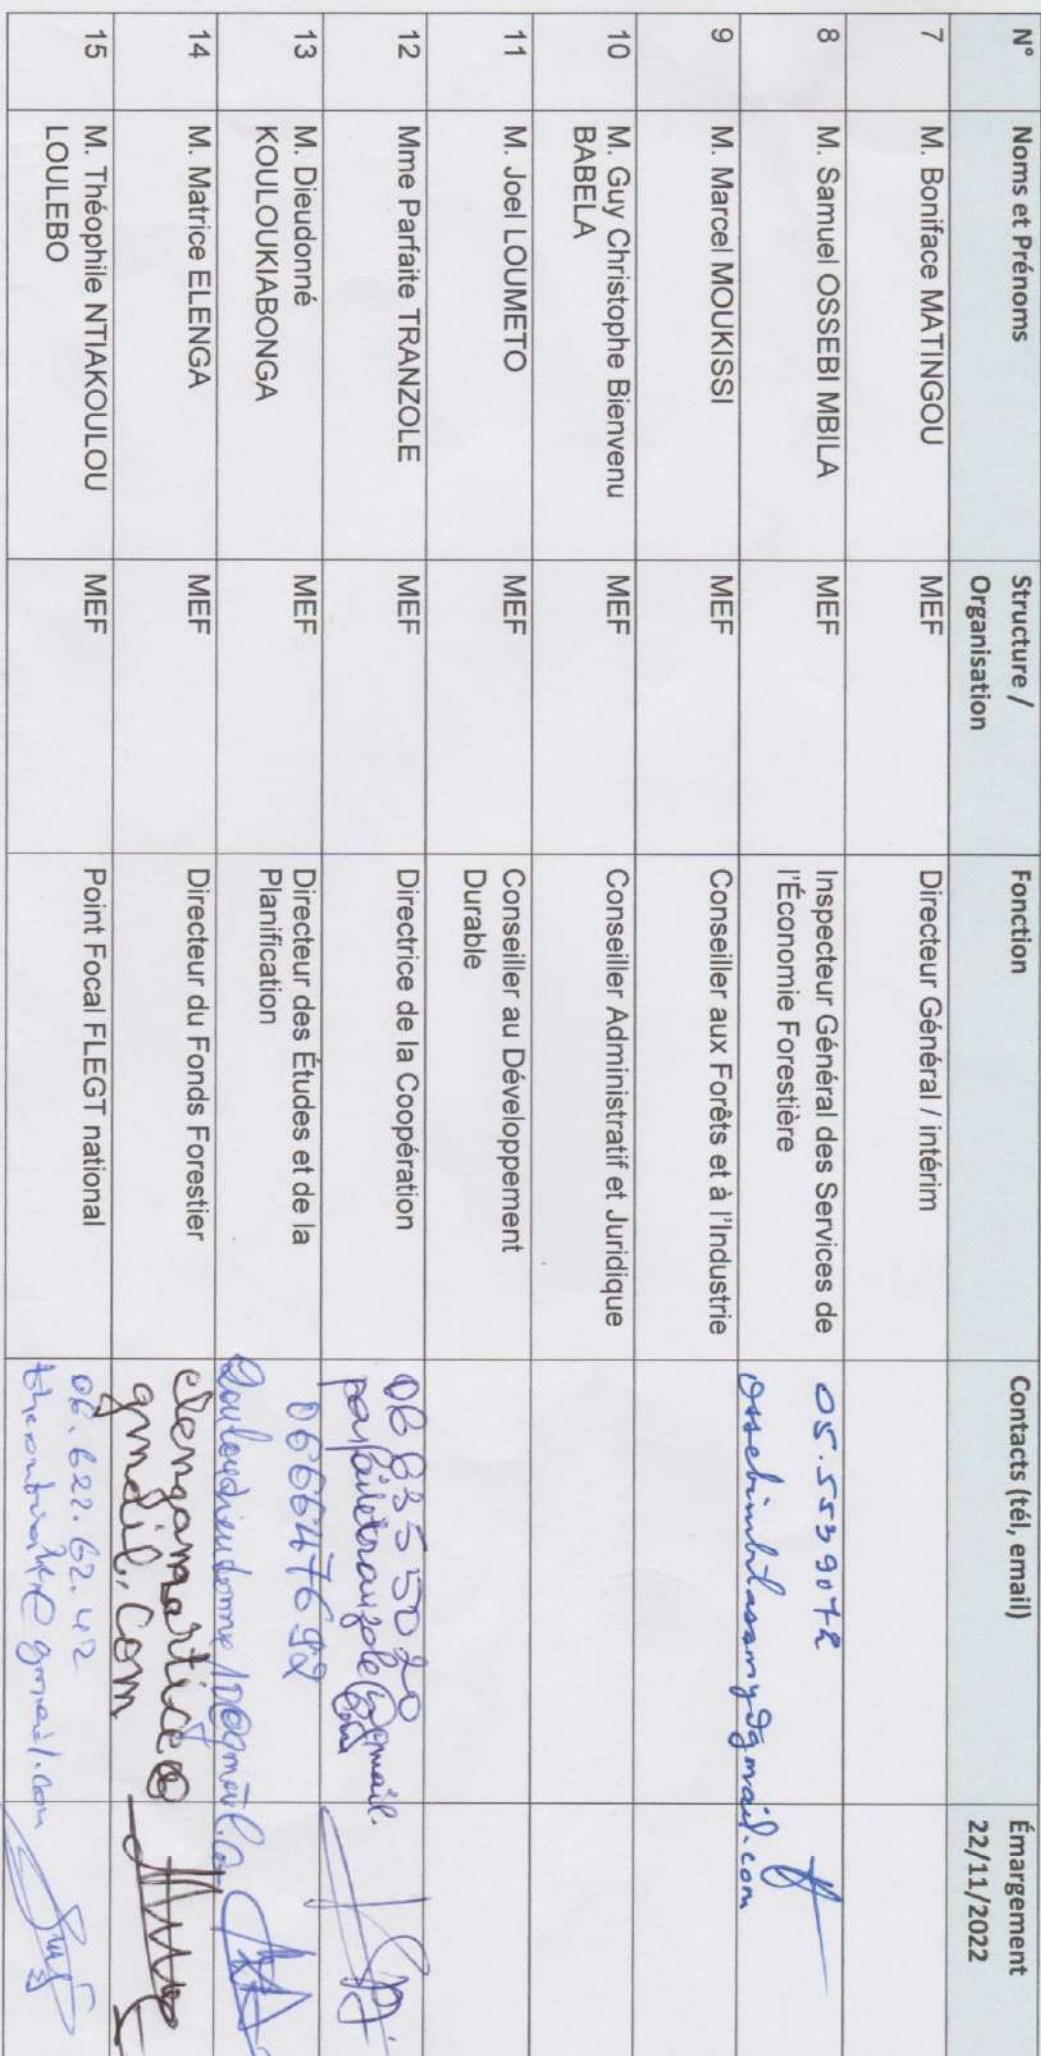 N° Noms et Prénoms Structure / Organisation Fonction Contacts (tél, email) Émargement 22/11/2022
7 M. Boniface MATINGOU MEF Directeur Général / intérim
8 M. Samuel OSSEBI MBILA MEF Inspecteur Général des Services de
l'Économie Forestière
05.553 90 72
ossebimbilasamy@gmail.com
9 M. Marcel MOUKISSI MEF Conseiller aux Forêts et à l'Industrie
10 M. Guy Christophe Bienvenu
BABELA
MEF Conseiller Administratif et Juridique
11 M. Joel LOUMETO MEF Conseiller au Développement
Durable
12 Mme Parfaite TRANZOLE MEF Directrice de la Coopération
06 835 50 20
parfaitetranzole@gmail.
com
13 M. Dieudonné
KOULOUKIABONGA
MEF Directeur des Études et de la
Planification
06664 76 92
14 M. Matrice ELENGA MEF Directeur du Fonds Forestier
elengamartice@
gmail.com
15 M. Théophile NTIAKOULOU
LOULEBO
MEF Point Focal FLEGT national
06.622.62.42